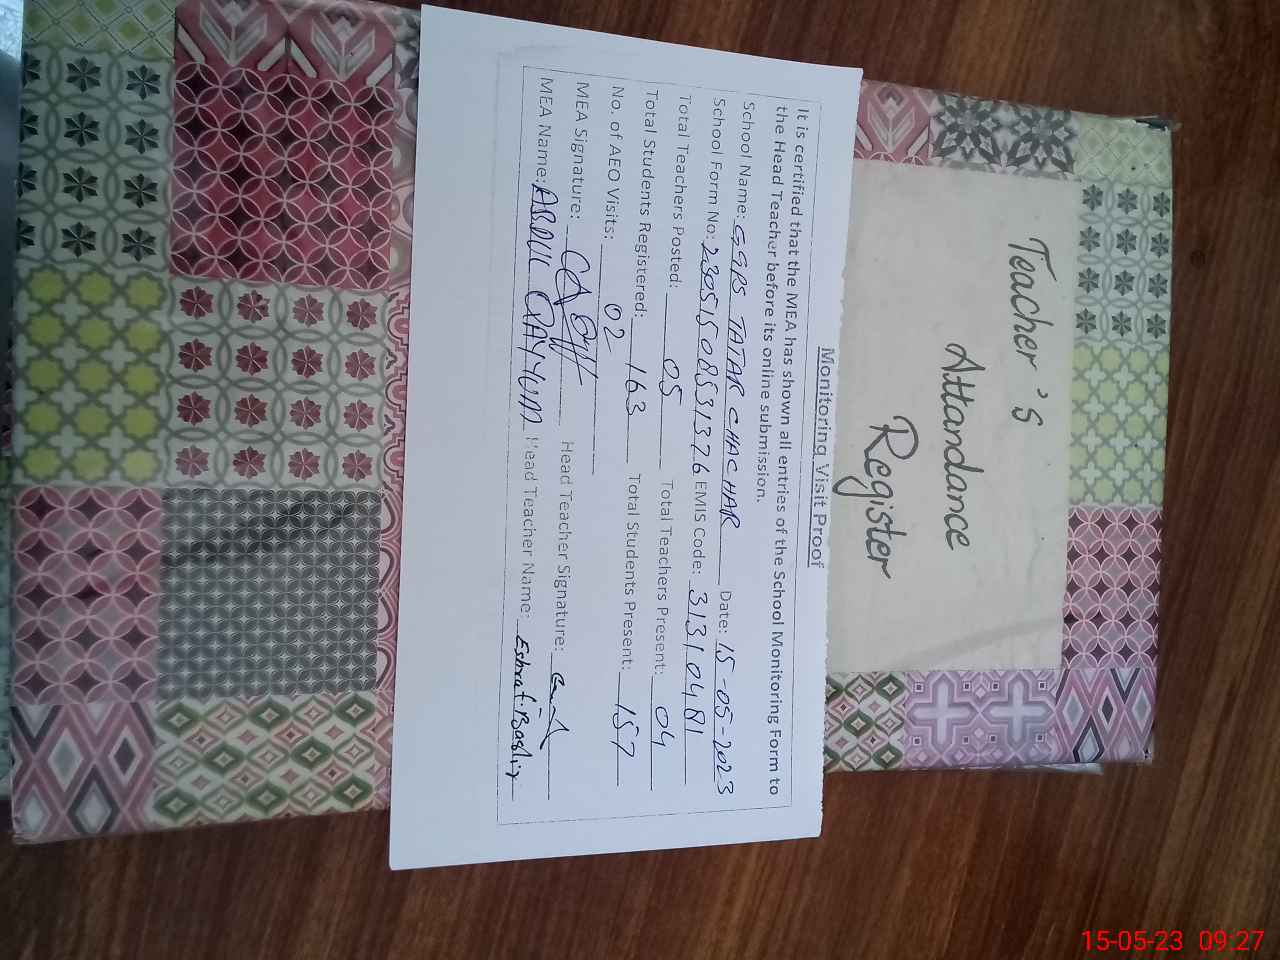 Teacher's
Attandance
Register
Monitoring Visit Proof
It is certified that the MEA has shown all entries of the School Monitoring Form to
the Head Teacher before its online submission.
School Name: GGPS TATAR CHACHAR Date: 15-05-2023
School Form No: 23051508531326 EMIS Code: 31310481
Total Teachers Posted: 05 Total Teachers Present: 04
Total Students Registered: 163 Total Students Present: 157
No. of AEO Visits: 02
MEA Signature: Head Teacher Signature:
MEA Name: ABDUL QAYYUM Head Teacher Name: Bashir
15-05-23 09:27